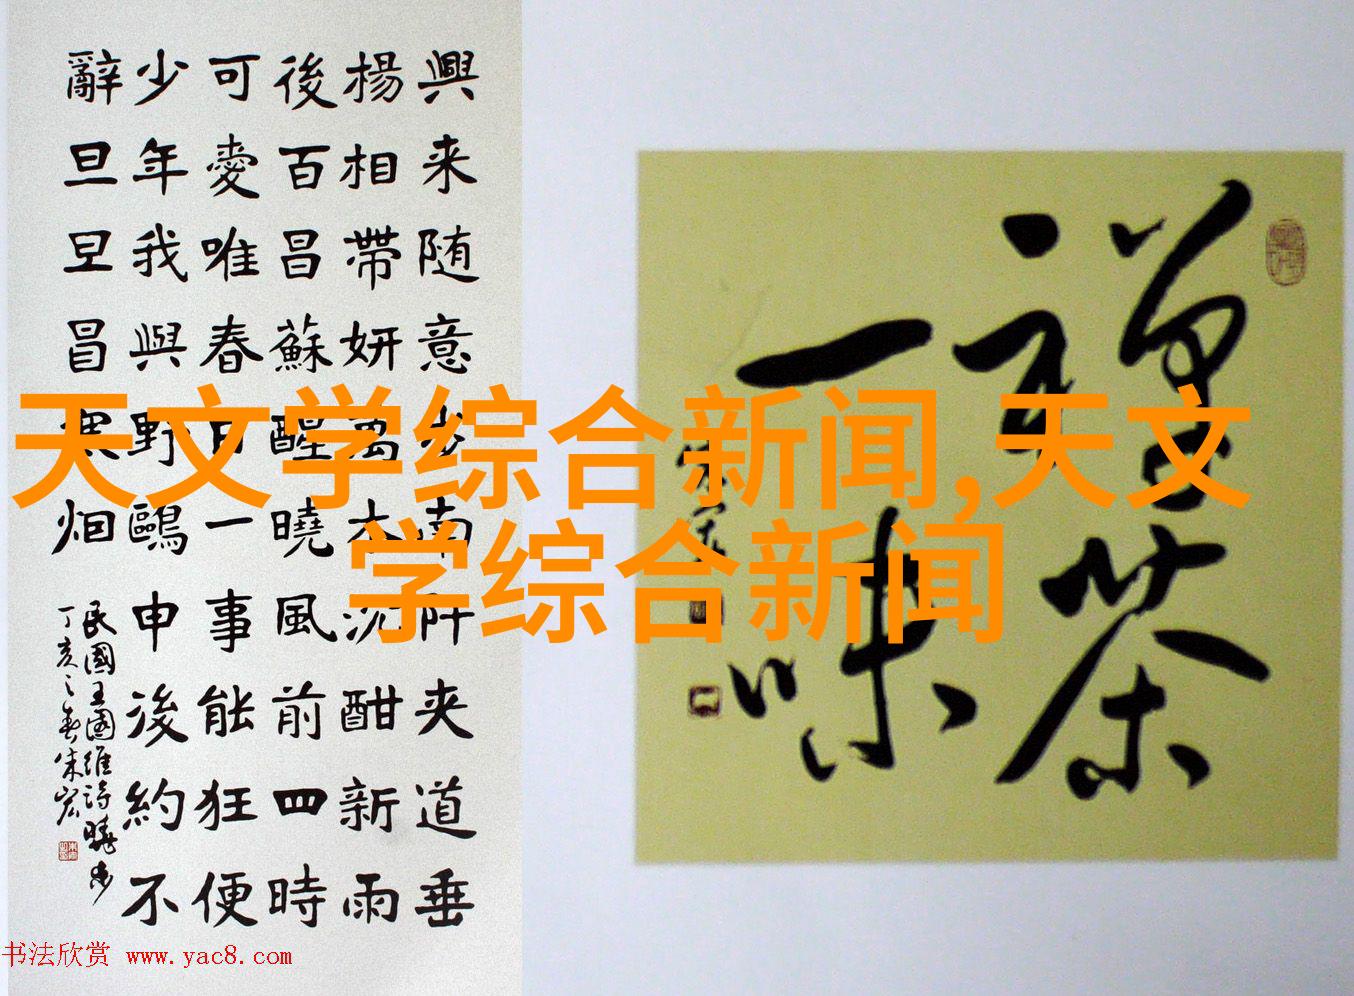 興来随意步南阡夹道垂
楊相帶妍萬木沉酣新雨
後百昌蘇醒曉風前四時
可愛唯春日一事能狂便
少年我與野鷗申後約不
辭旦旦冒寒烟
民國王國維詩曉步
丁亥之春朱宏
禪茶
一味
天文学综合新闻,天文
学综合新闻
书法欣赏 www.yac8.com